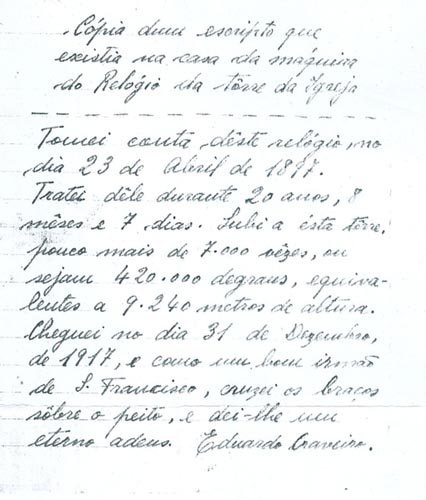 Cópia dum escripto que
existia na casa da máquina
do Relógio da tôrre da Igreja
Tomei conta dêste relógio, no
dia 23 de Abril de 1897.
Tratei dêle durante 20 anos, 8
mêses e 7 dias. Subi a esta tôrre,
pouco mais de 7.000 vêzes, ou
sejam 420.000 degraus, equiva-
lentes a 9.240 metros de altura.
Cheguei no dia 31 de Dezembro,
de 1917, e como um bom irmão
de S. Francisco, cruzei os braços
sôbre o peito, e dei-lhe um
eterno adeus. Eduardo Craveiro.